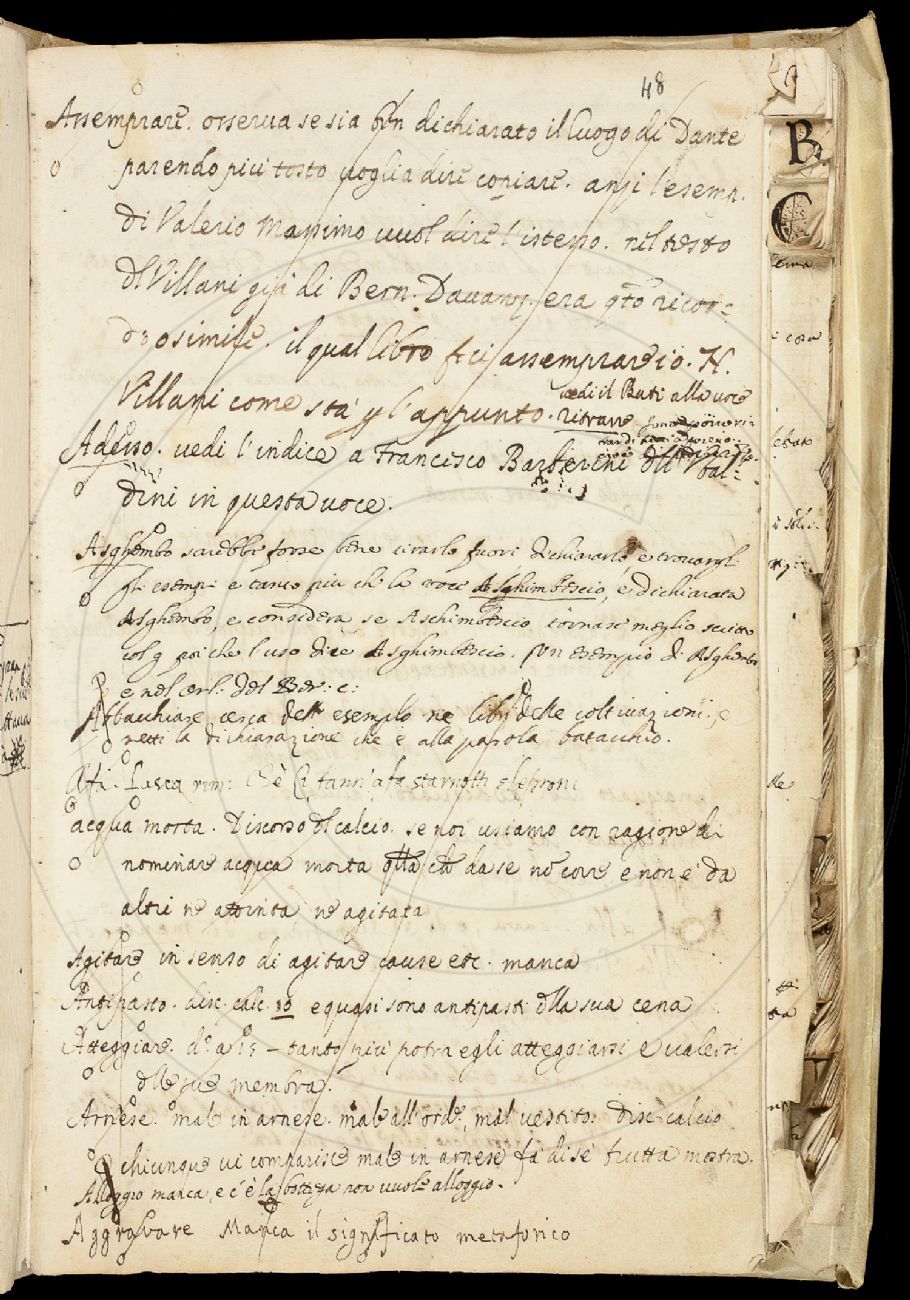 48
Assemprare. osserua se sia bn dichiarato il luogo di Dante
parendo piu tosto uoglia dire copiare. anzi l'esemp.
di Valerio Massimo uuol dire l'istesso. nel testo
dl Villani già di Bern. Dauanz. era qto ricor-
do simile. il qual libro feci assemprare io. N.
Villani come sta p l'appunto. uedi il Buti alla uoce
ritrarre
Adesso. uedi l'indice a Francesco Barberini dll' Vbal-
dini in questa uoce.
Asghembo sarebbe forse bene tirarlo fuori dichiararlo e trouargl
gli esempi e tanto piu che la voce Asghimbescio, è dichiarata
Asghembo, e considera se Aschimbescio tornasse meglio scritto
col g poi che l'uso dice Asghimbescio. Un esempio di Asghembo
e nel
Abbacchiare cerca dell' esemplo ne libri delle coltiuazioni, e
metti la dichiarazione che e alla parola batacchio.
Afa. Lasca rim: starnotti e leproni
acqua morta. Discorso dl calcio. se noi usiamo con ragione di
nominare acqua morta qlla che da se nō corre e non è da
altri ne attinta ne agitata
Agitare in senso di agitare cause etc. manca
Antipasto. disc. calc. 10 e quasi sono antipasti dlla sua cena
Atteggiare. d.o a 15 - tanto piu potra egli atteggiarsi e ualersi
dlle sue membra.
Arnese. male in arnese. male all'ord., mal uestito. disc. calcio
chiunque ui comparisce male in arnese fa di se brutta mostra.
Alloggio manca, e c'è la bottega non vuole alloggio.
Aggrauare Manca il significato metaforico
B
C